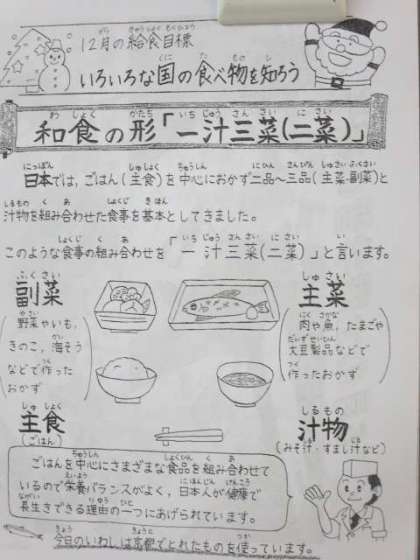 12月の給食目標
いろいろな国の食べ物を知ろう
和食の形「一汁三菜(二菜)」
日本では,ごはん(主食)を中心におかず二品〜三品(主菜・副菜)と
汁物を組み合わせた食事を基本としてきました。
このような食事の組み合わせを「一汁三菜(二菜)」と言います。
副菜
(野菜やいも,
きのこ,海そう
などで作った
おかず)
主菜
(肉や魚,たまごや
大豆製品などで
作ったおかず)
主食
(ごはん)
汁物
(みそ汁・すまし汁など)
ごはんを中心にさまざまな食品を組み合わせて
いるので栄養バランスがよく,日本人が健康で
長生きできる理由の一つにあげられています。
今日のいわしは京都でとれたものを使っています。